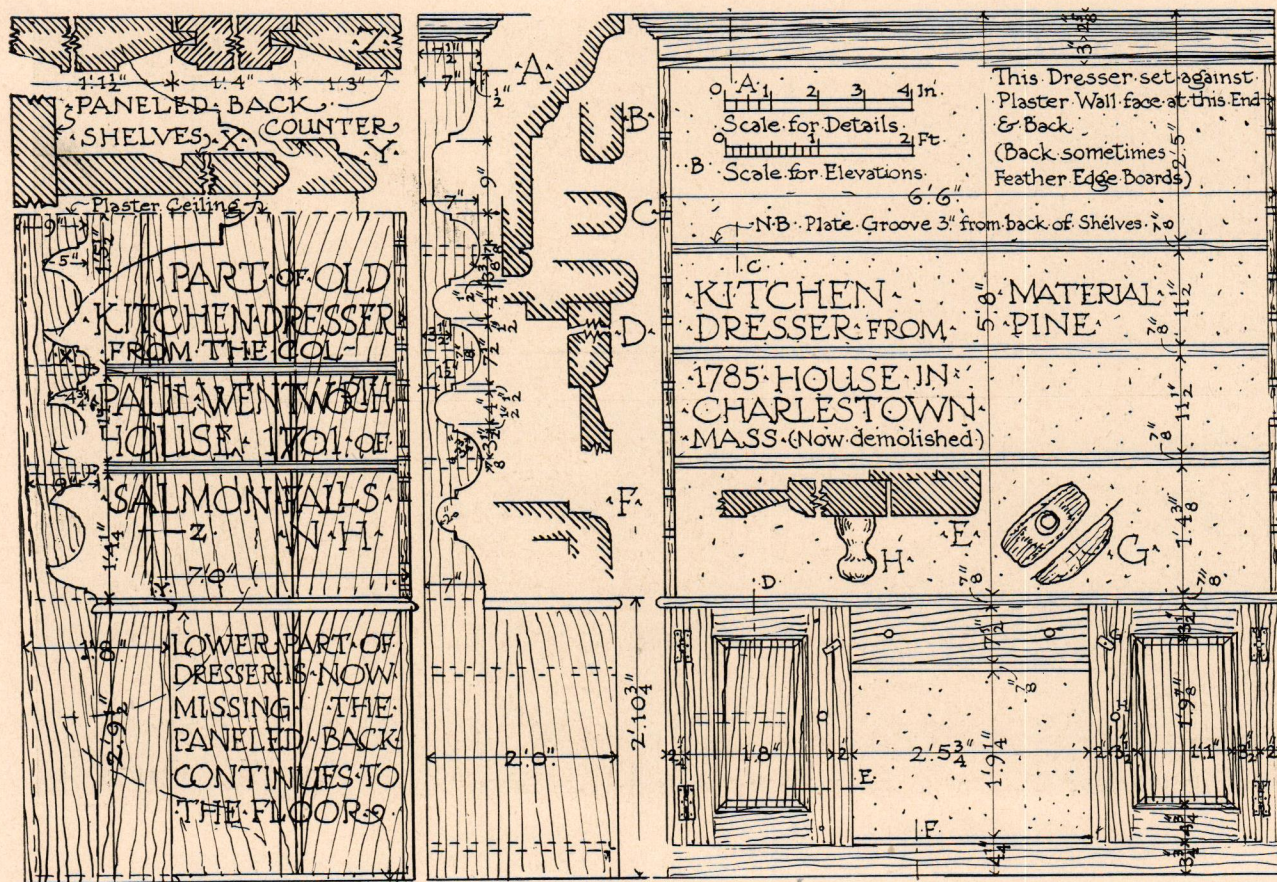 Z
1'·1½" 1'·4" 1'·3"
PANELED· BACK·
SHELVES· X· COUNTER
Y·
Plaster Ceiling
9"
5"
1'·5½"
·PART· OF· OLD
KITCHEN· DRESSER
FROM· THE· COL-
X
4¾"
PAUL· WENTWORTH
HOUSE· 1701· OF
SALMON· FALLS·
Z· N· H·
1'·4¼"
7'·0"
Y
1'·8"
2'·9½"
LOWER· PART· OF·
DRESSER· IS· NOW
MISSING· THE·
PANELED· BACK·
CONTINUES· TO
THE· FLOOR
7½"
7"
½"
9"
7"
7"
2'·0"
2'·10¾"
A
B
C
D
F
3" 2⅝"
A
0 1 2 3 4 In
Scale for Details
0 1 2 Ft
B Scale for Elevations
This· Dresser· set· against·
Plaster· Wall· face· at· this· End·
& Back
(Back· sometimes·
Feather· Edge· Boards)
2'·5"
6'·6"
N·B· Plate· Groove· 3"· from· back· of· Shelves·
⅞"
C
KITCHEN·
DRESSER· FROM·
5'·8"
·MATERIAL·
·PINE·
11½"
⅞"
1785· HOUSE· IN·
CHARLESTOWN·
·MASS· (Now· demolished)
11½"
⅞"
E
H
G
1'·4¾"
⅞"
⅞"
D
7½"
3½"
⅞"
G
H
1'·9⅞"
2½" 1'·8" 2" 2'·5¾" 1'·9¼" 2" 3½" 1'·1" 3½" 2"
E
F
4¼"
4¾"
3¾"